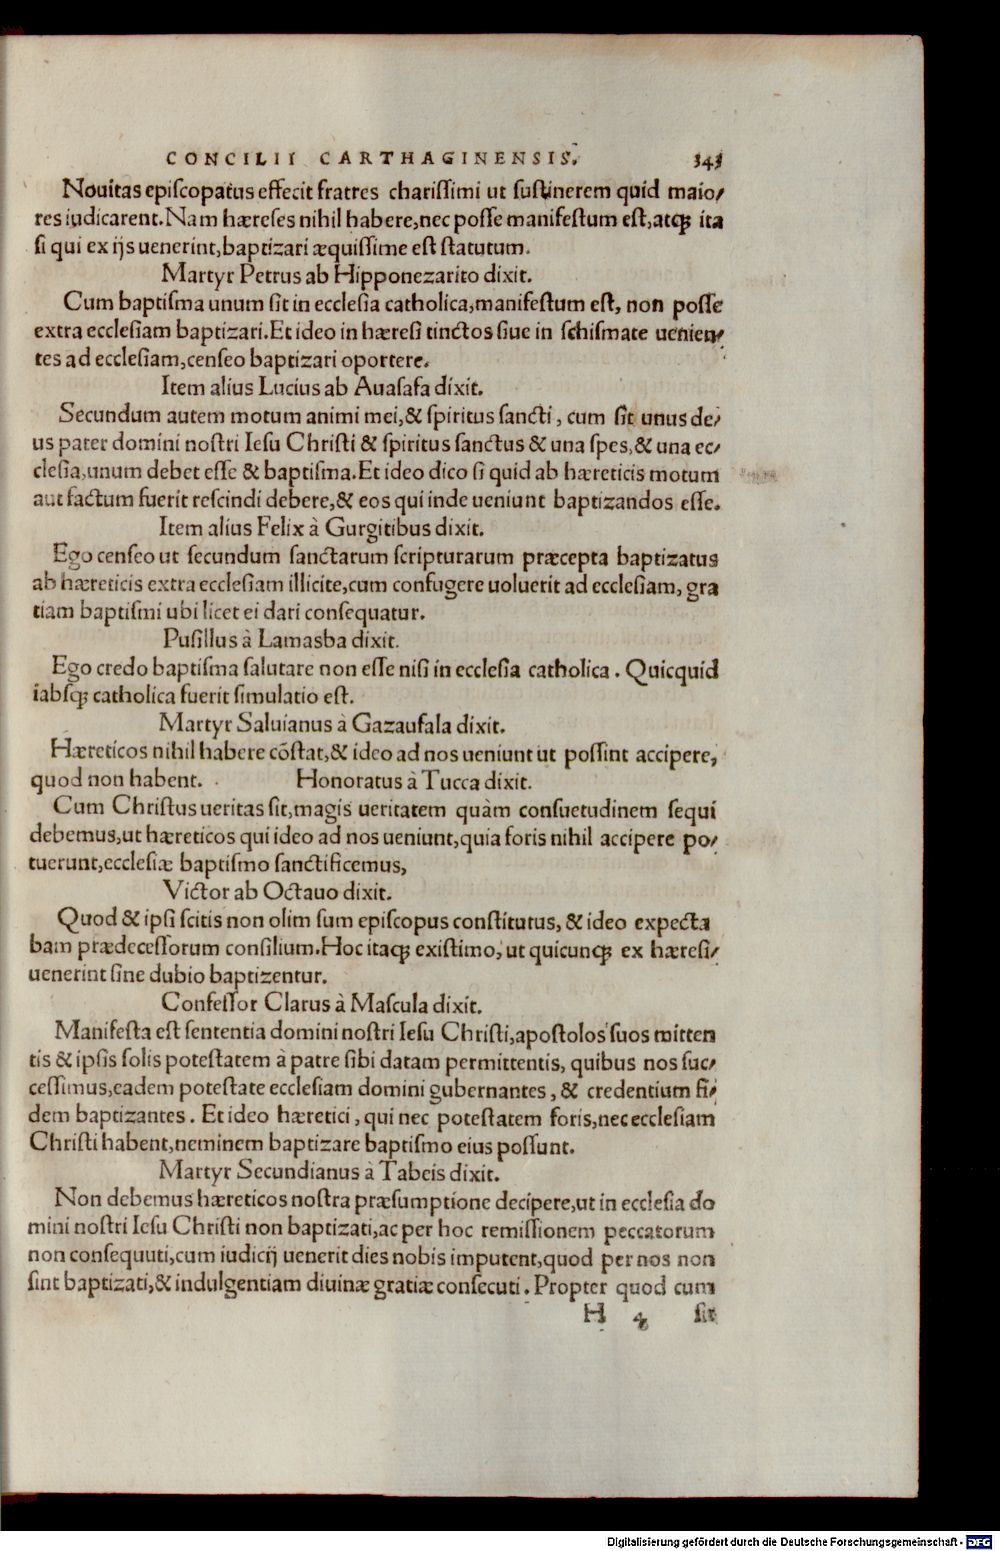 CONCILII CARTHAGINENSIS. 343
Nouitas episcopatus effecit fratres charissimi ut sustinerem quid maio/
res iudicarent. Nam hæreses nihil habere, nec posse manifestum est, atq; ita
si qui ex ijs uenerint, baptizari æquissime est statutum.
Martyr Petrus ab Hipponezarito dixit.
Cum baptisma unum sit in ecclesia catholica, manifestum est, non posse
extra ecclesiam baptizari. Et ideo in hæresi tinctos siue in schismate uenien/
tes ad ecclesiam, censeo baptizari oportere.
Item alius Lucius ab Auasafa dixit.
Secundum autem motum animi mei, & spiritus sancti, cum sit unus de/
us pater domini nostri Iesu Christi & spiritus sanctus & una spes, & una ec/
clesia, unum debet esse & baptisma. Et ideo dico si quid ab hæreticis motum
aut factum fuerit rescindi debere, & eos qui inde ueniunt baptizandos esse.
Item alius Felix à Gurgitibus dixit.
Ego censeo ut secundum sanctarum scripturarum præcepta baptizatus
ab hæreticis extra ecclesiam illicite, cum confugere uoluerit ad ecclesiam, gra
tiam baptismi ubi licet ei dari consequatur.
Pusillus à Lamasba dixit.
Ego credo baptisma salutare non esse nisi in ecclesia catholica. Quicquid
iabsq; catholica fuerit simulatio est.
Martyr Saluianus à Gazaufala dixit.
Hæreticos nihil habere cõstat, & ideo ad nos ueniunt ut possint accipere,
quod non habent. Honoratus à Tucca dixit.
Cum Christus ueritas sit, magis ueritatem quàm consuetudinem sequi
debemus, ut hæreticos qui ideo ad nos ueniunt, quia foris nihil accipere po/
tuerunt, ecclesiæ baptismo sanctificemus,
Victor ab Octauo dixit.
Quod & ipsi scitis non olim sum episcopus constitutus, & ideo expecta
bam prædecessorum consilium. Hoc itaq; existimo, ut quicunq; ex hæresi/
uenerint sine dubio baptizentur.
Confessor Clarus à Mascula dixit.
Manifesta est sententia domini nostri Iesu Christi, apostolos suos mitten
tis & ipsis solis potestatem à patre sibi datam permittentis, quibus nos suc/
cessimus, eadem potestate ecclesiam domini gubernantes, & credentium fi/
dem baptizantes. Et ideo hæretici, qui nec potestatem foris, nec ecclesiam
Christi habent, neminem baptizare baptismo eius possunt.
Martyr Secundianus à Tabeis dixit.
Non debemus hæreticos nostra præsumptione decipere, ut in ecclesia do
mini nostri Iesu Christi non baptizati, ac per hoc remissionem peccatorum
non consequuti, cum iudicij uenerit dies nobis imputent, quod per nos non
sint baptizati, & indulgentiam diuinæ gratiæ consecuti. Propter quod cum
H 4 sit
Digitalisierung gefördert durch die Deutsche Forschungsgemeinschaft - DFG